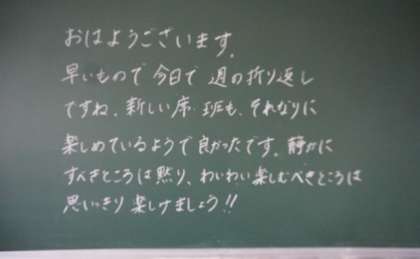 おはようございます。
早いもので今日で週の折り返し
ですね。新しい席・班も、それなりに
楽しめているようで良かったです。静かに
すべきところは黙り、わいわい楽しむべきところは
思いっきり楽しけましょう!!